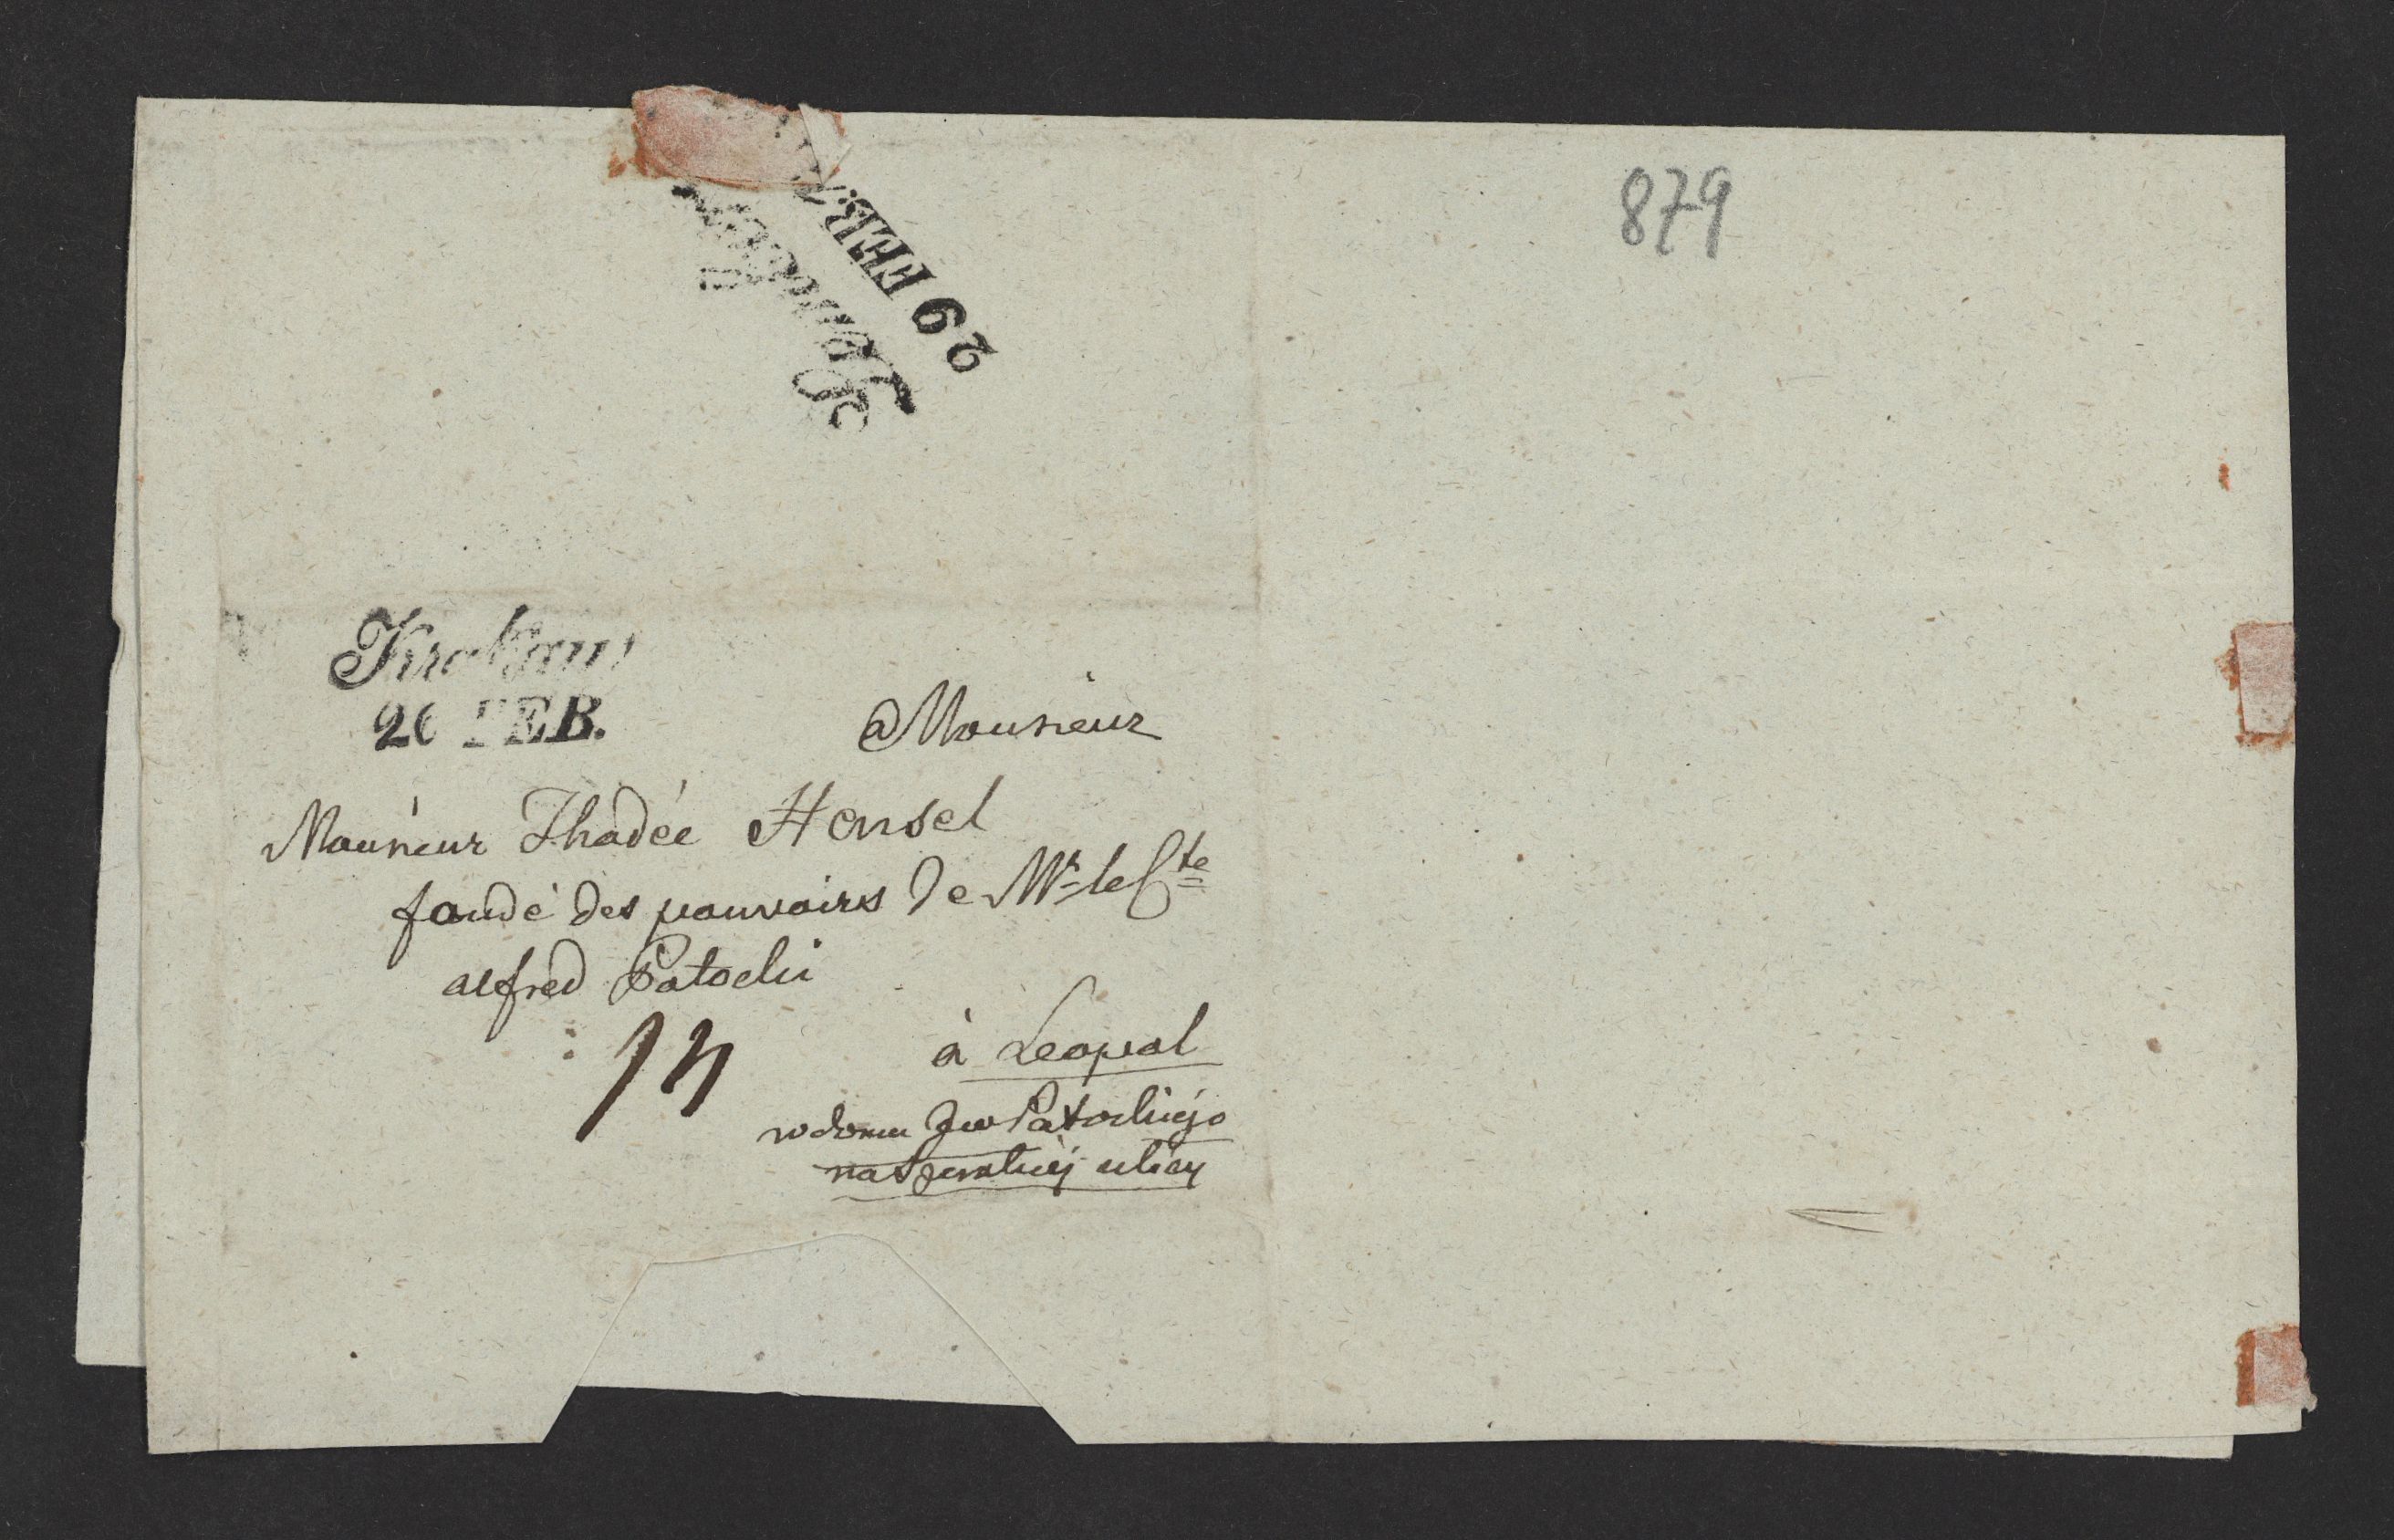 879
29 FEB.
Lemberg
Krakau
26 FEB.
a Monsieur
Monsieur Thadée Hensel
fondé des pouvoirs de Mr le Cte
alfred Potocki
à Leopol
w domu Jw Potockiego
na Szerokiej ulicy